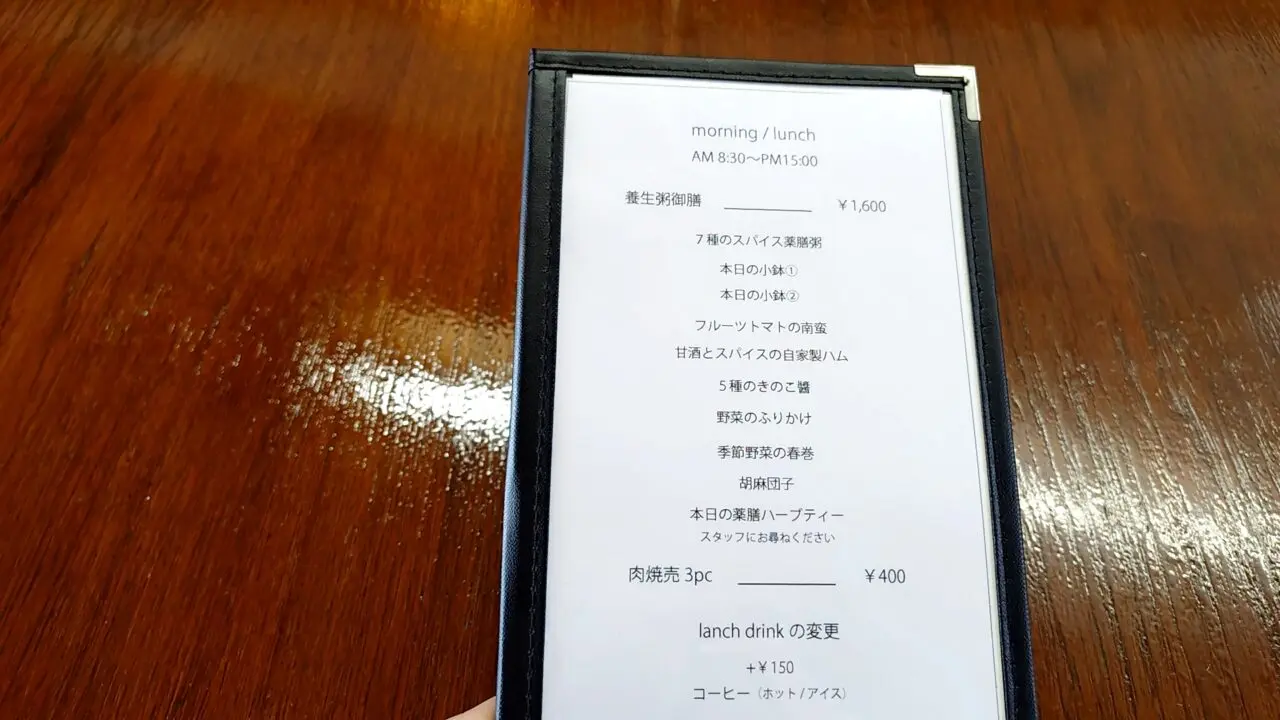 morning / lunch
AM 8:30〜PM15:00
養生粥御膳 ¥1,600
7種のスパイス薬膳粥
本日の小鉢①
本日の小鉢②
フルーツトマトの南蛮
甘酒とスパイスの自家製ハム
5種のきのこ醬
野菜のふりかけ
季節野菜の春巻
胡麻団子
本日の薬膳ハーブティー
スタッフにお尋ねください
肉焼売 3pc ¥400
lanch drink の変更
+¥150
コーヒー（ホット / アイス）